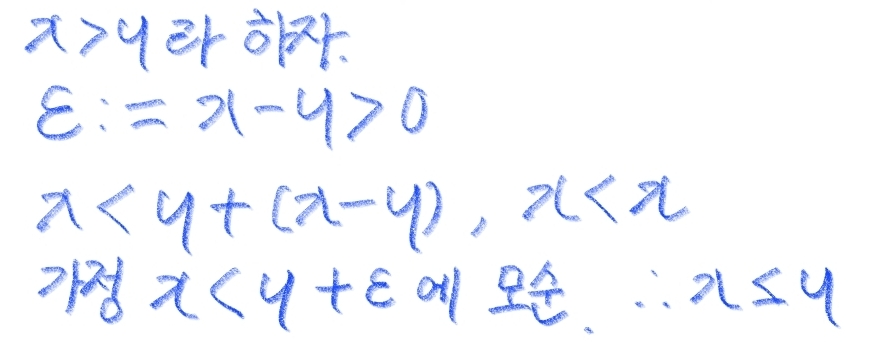 x>y라 하자.
ε:= x-y>0
x<y+(x-y), x<x
가정 x<y+ε에 모순. ∴x≤y